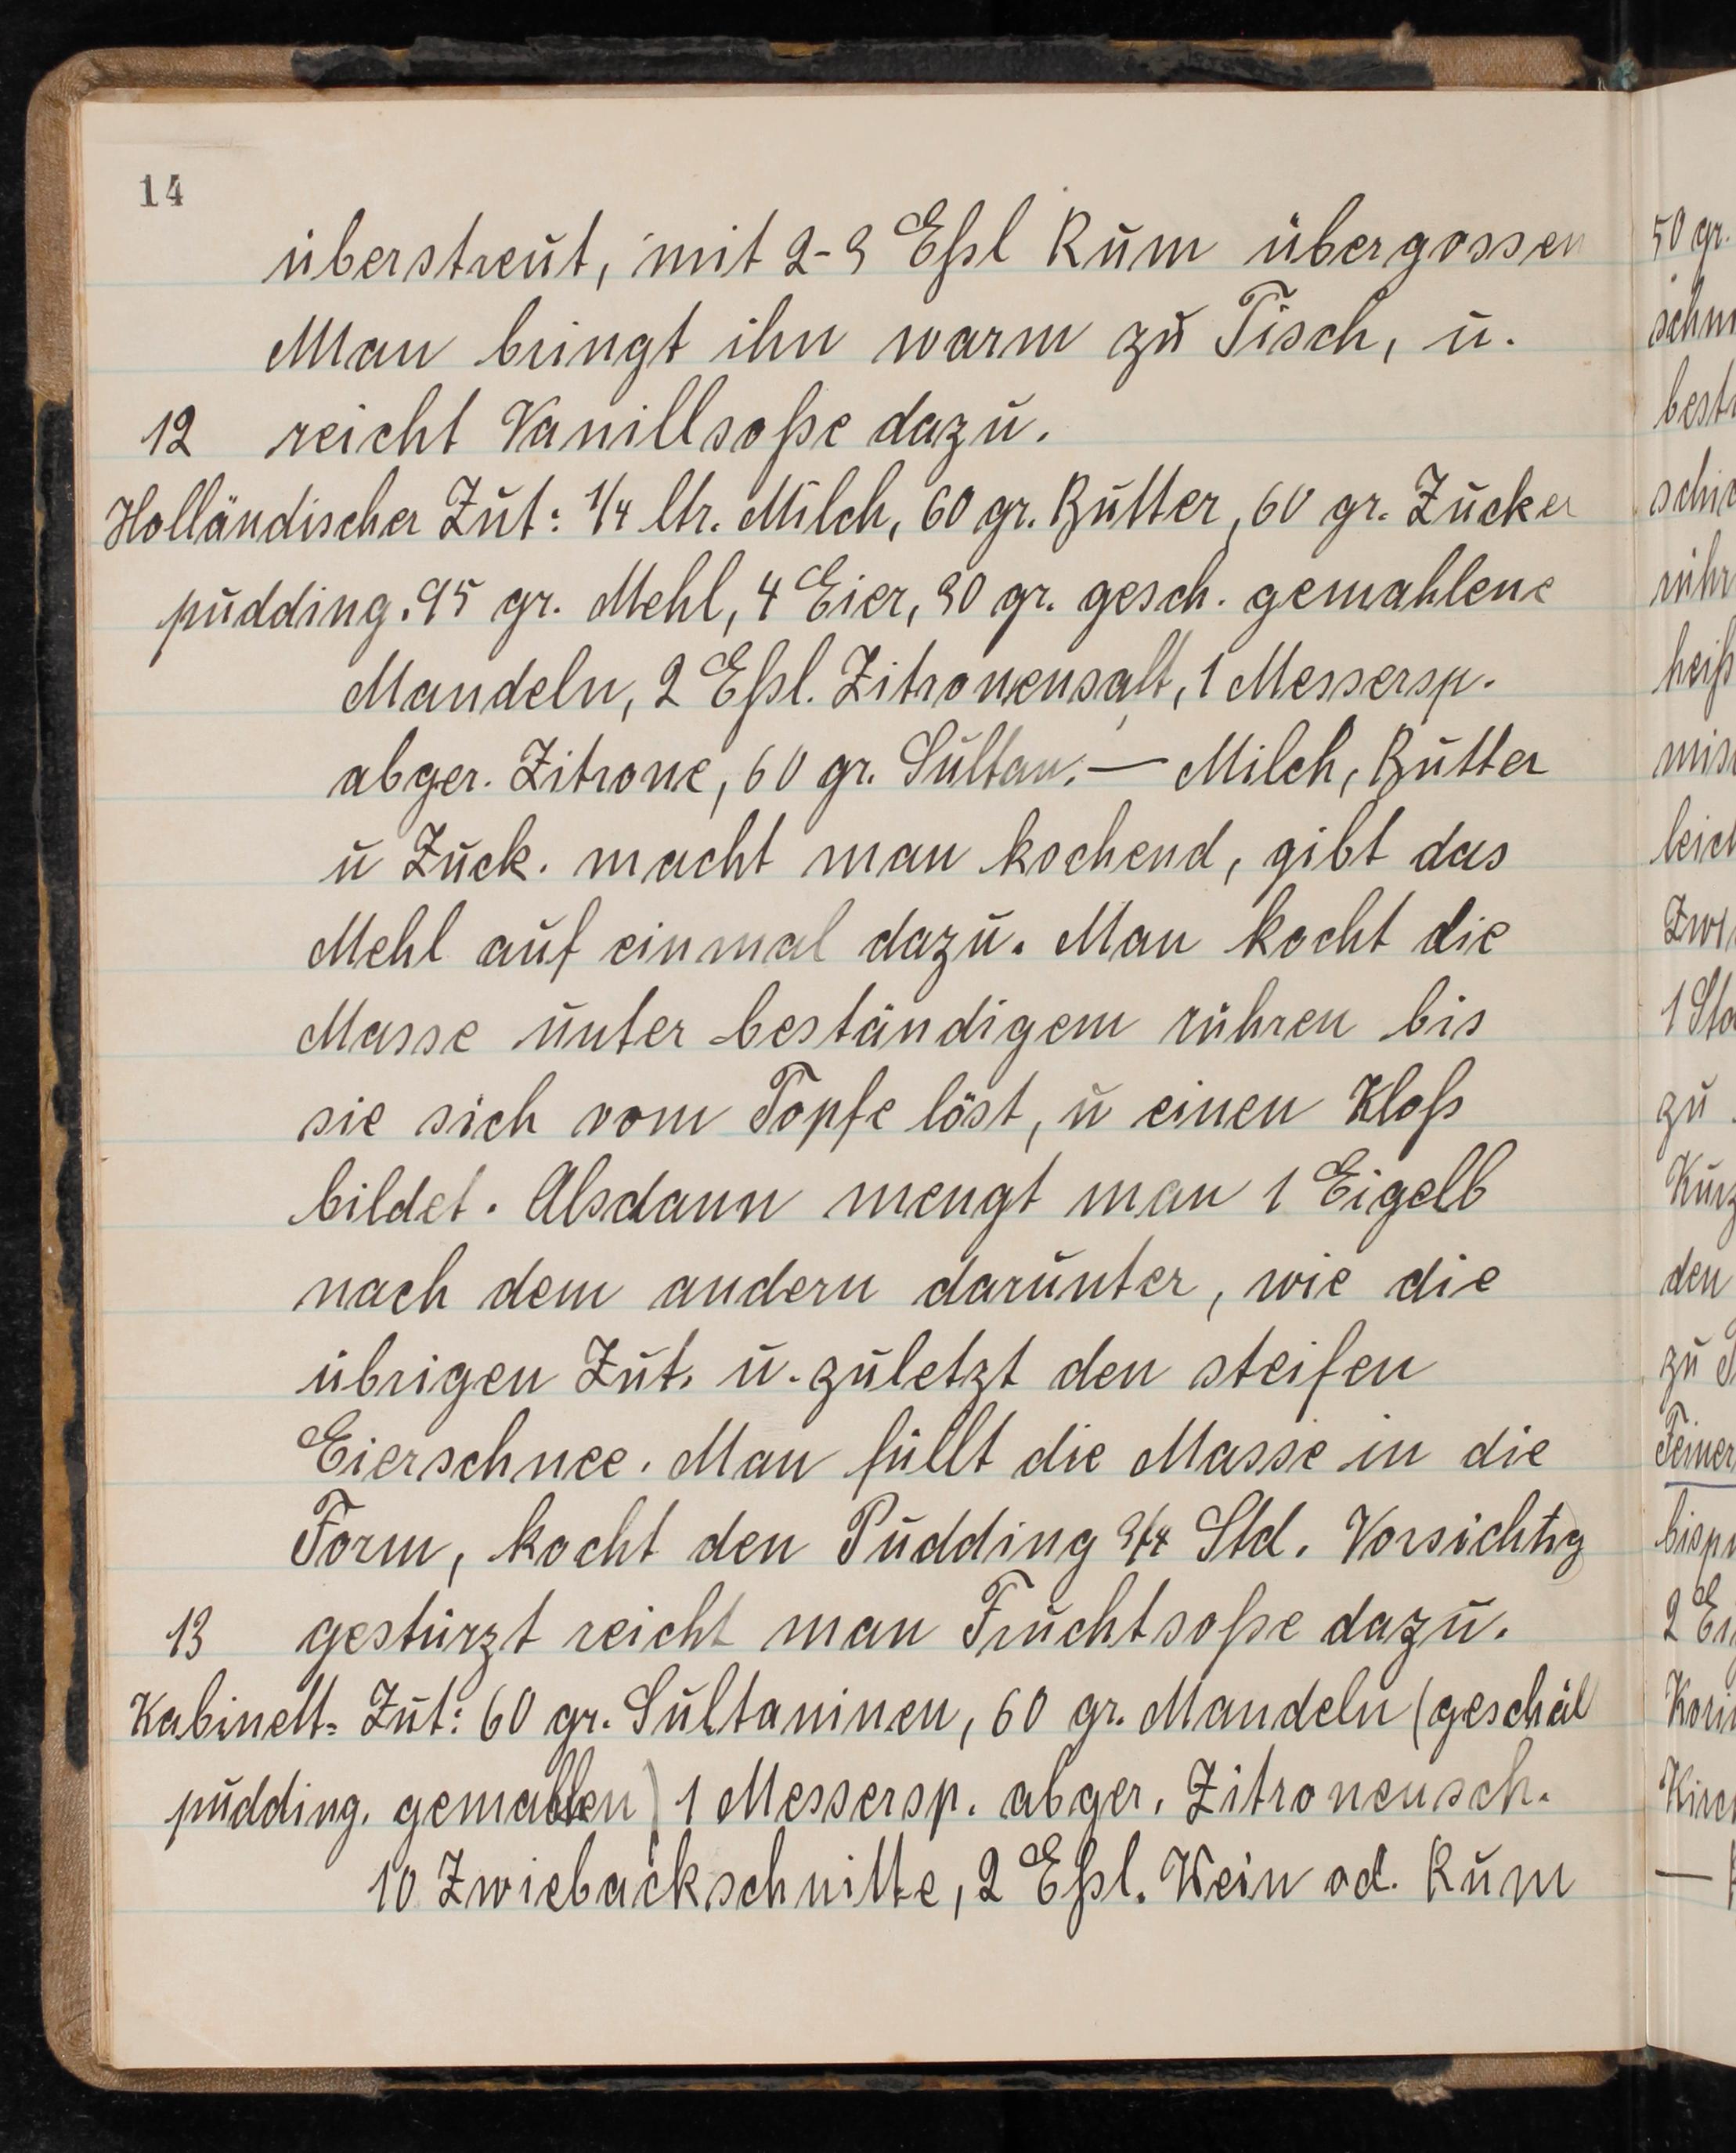 14
überstreut, mit 2-3 Eßl Rum übergossen
Man bringt ihn warm zu Tisch, u.
12 reicht Vanillsoße dazu.
Holländischer Zut: 1/4 ltr. Milch, 60 gr. Butter, 60 gr. Zucker
pudding. 95 gr. Mehl, 4 Eier, 30 gr. gesch. gemahlene
Mandeln, 2 Eßl. Zitronensaft, 1 Messersp.
abger. Zitrone, 60 gr. Sultan. — Milch, Butter
u Zuck. macht man kochend, gibt das
Mehl auf einmal dazu. Man kocht die
Masse unter beständigem rühren bis
sie sich vom Topfe löst, u einen Kloß
bildet. Alsdann mengt man 1 Eigelb
nach dem andern darunter, wie die
übrigen Zut. u. zuletzt den steifen
Eierschnee. Man füllt die Masse in die
Form, kocht den Pudding 3/4 Std. Vorsichtig
13 gestürzt reicht man Fruchtsoße dazu.
Kabinett= Zut: 60 gr. Sultaninen, 60 gr. Mandeln (geschäl
pudding. gemahlen) 1 Messersp. abger. Zitronensch.
10 Zwiebackschnitte, 2 Eßl. Wein od. Rum
50 gr.
heiß
1
zu
den
zu
2
—